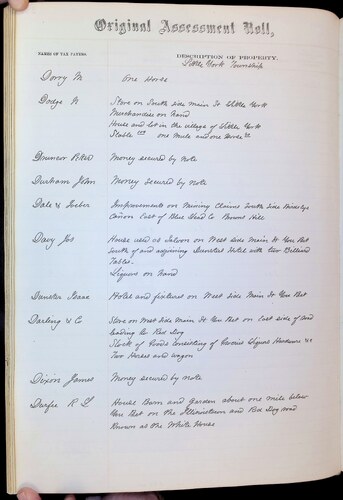 Original Assessment Roll,
NAMES OF TAX PAYERS. DESCRIPTION OF PROPERTY.
Little York Township
Dorry M One Horse
Dodge N Store on South side Main St Little York
Merchandise on hand
House and lot in the village of Little York
Stable one mule and one Horse
Money secured by note
Durham John Money secured by note
Dale & Improvements on Mining Claims South side Birdseye
Cañon East of Blue Lead Co Browns Hill
Davy Jos House used as Saloon on West side Main St You Bet
South of and adjoining Danstars Hotel with two Billiard
Tables
Liquors on hand
Isaac Hotel and fixtures on West side Main St You Bet
Darling & Co Store on West side Main St You Bet on East side of road
leading to Red Dog
Stock of Goods consisting of various Liquors Hardware &c
Two Horses and wagon
Dixon James Money secured by note
R L House Barn and Garden about one mile below
You Bet on the Illinoistown and Red Dog road
Known as the White House